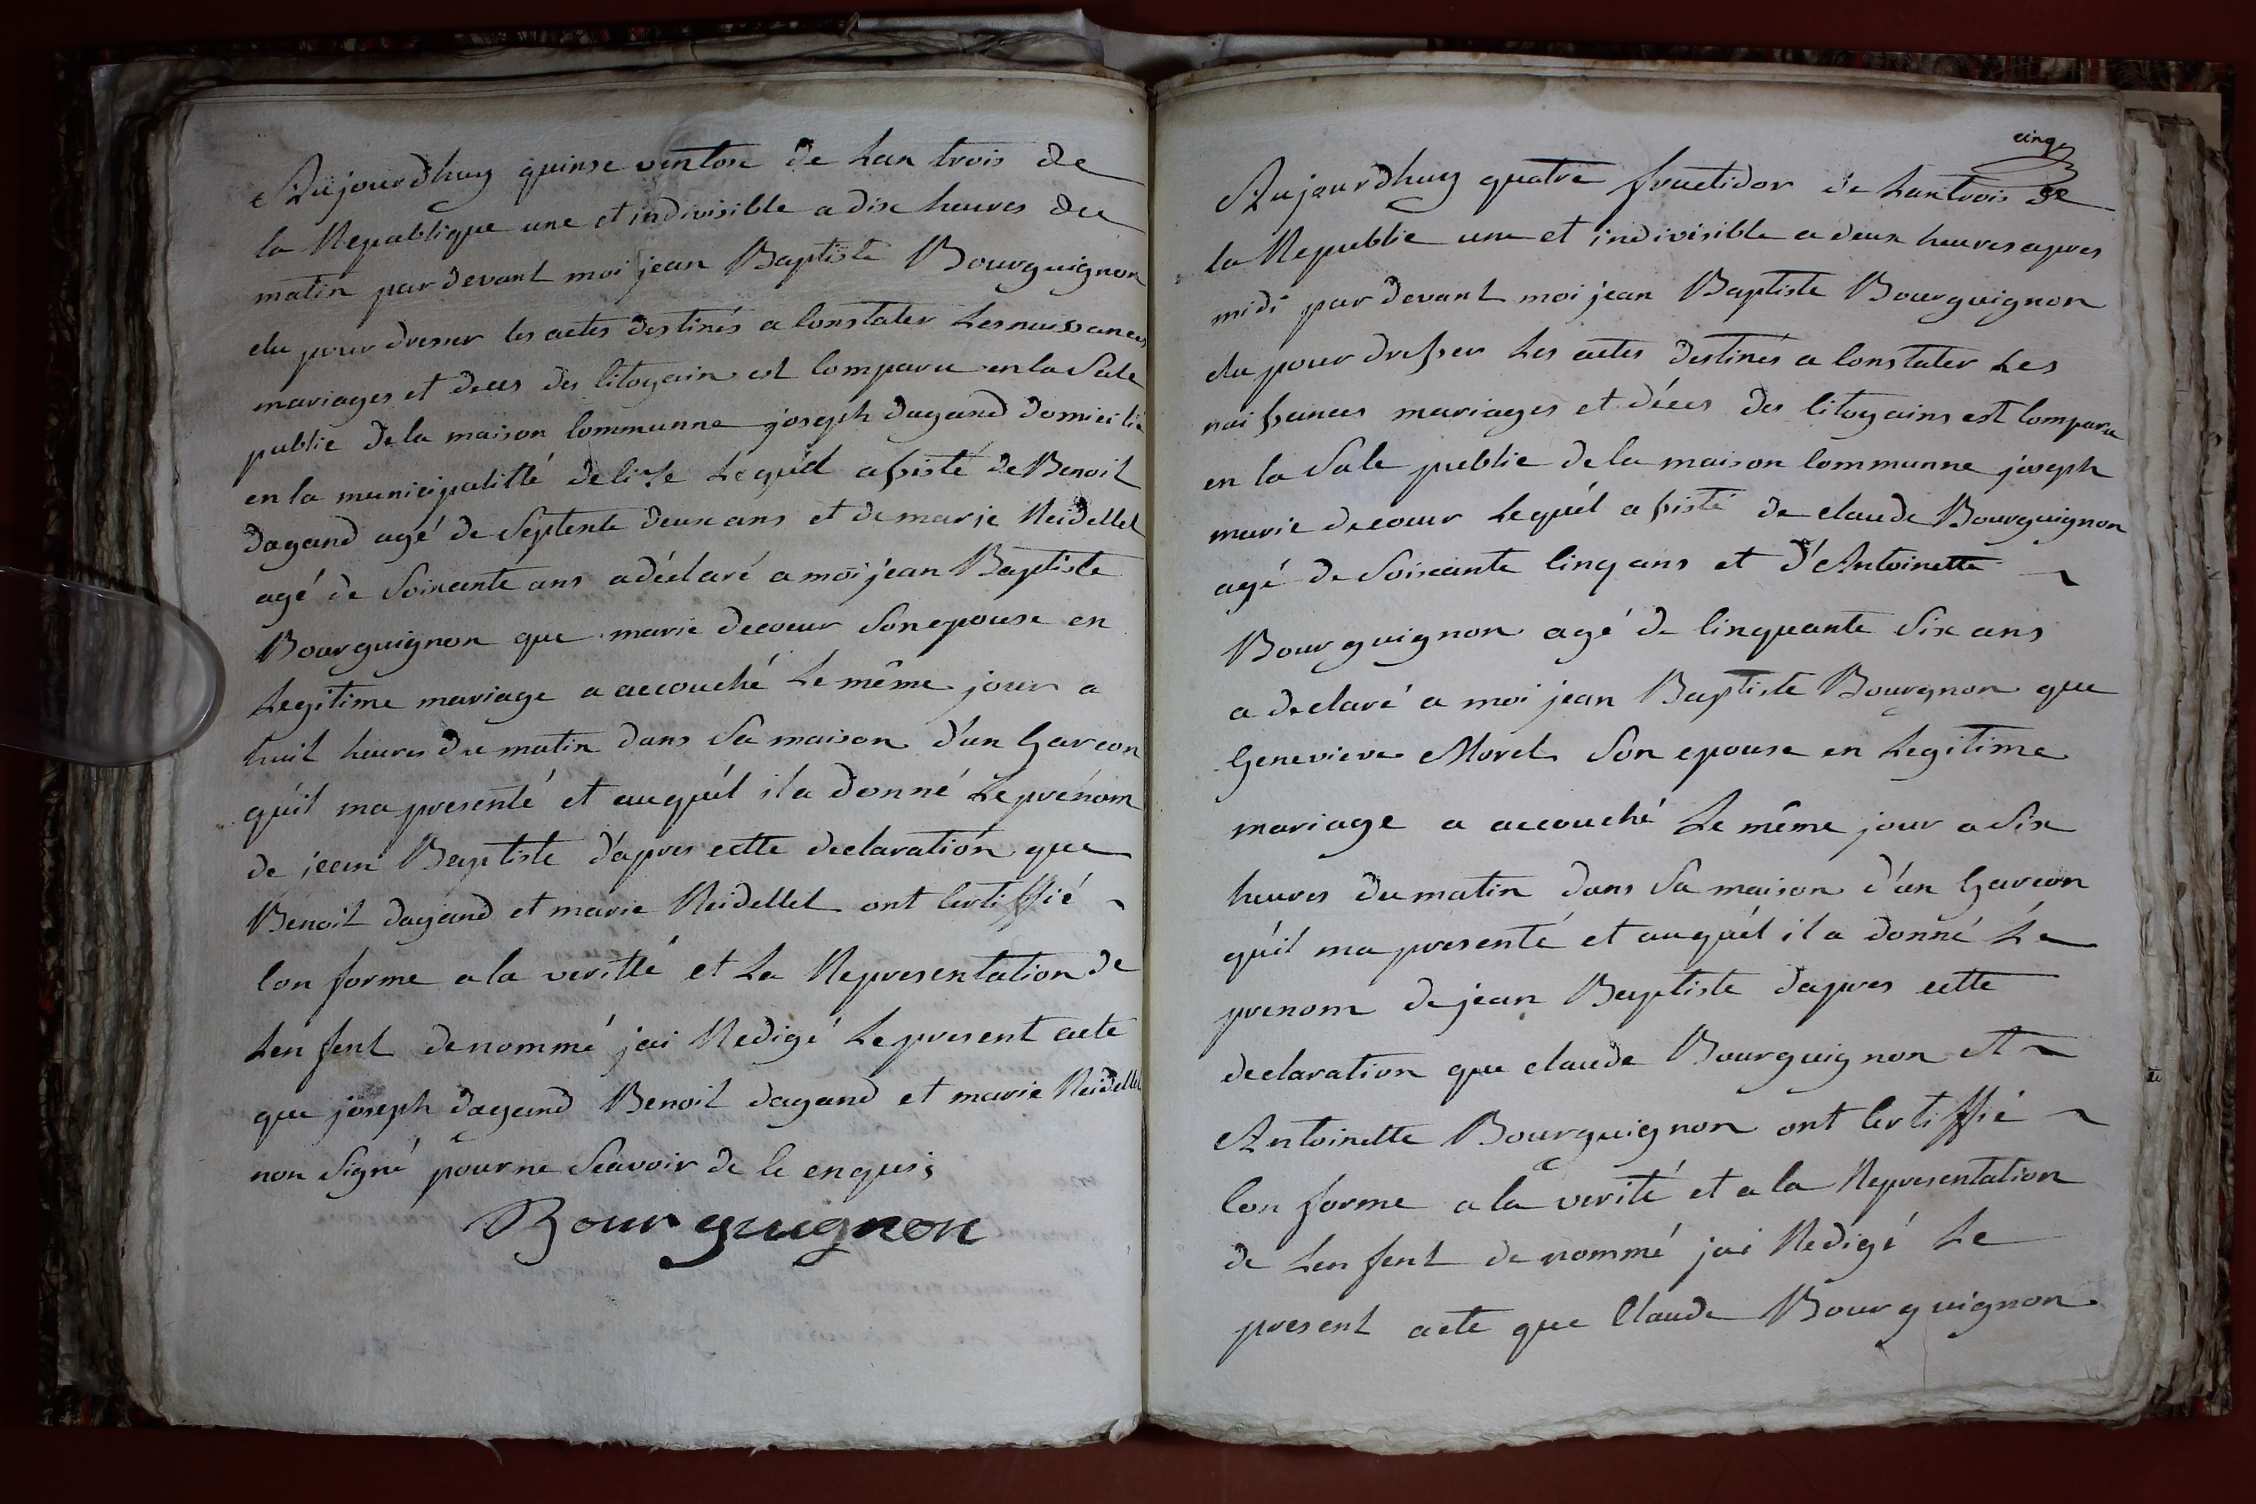 Aujourdhuy quinse ventose de Lan trois de
la Republique une et indivisible a dix heures du
matin par devant moi jean Baptiste Bourguignon
elu pour dresser les actes destinés a Constater Les naissances
mariages et deces des Citoyain est Comparu en la Sale
public de la maison Communne joseph dagand domicilié
en la municipalitté de Lequél assisté de Benoit
dagand agé de Septente deux ans et de marie Reidellet
agé de Soixante ans a déclaré a moi jean Baptiste
Bourguignon que marie decoeur Son epouse en
Legitime mariage a accouché Le même jour a
huit heures du matin dans Sa maison d'un Garcon
qu'il ma presenté et auquél il a donné Le prénom
de jean Baptiste d'apres cette declaration que
Benoit dagand et marie Reidellet ont Certiffié
Con forme a la veritté et La Representation de
Len fent denommé jai Redigé Le present acte
que joseph dagand Benoit dagand et marie Reidellet
non Signé pour ne Scavoir de Ce enquis
Bourguignon
cinq
Aujourdhuy quatre fructidor de Lan trois de
la Republic une et indivisible a deux heures apres
midi par devant moi jean Baptiste Bourguignon
elu pour dresser Les actes destinés a Constater Les
naissances mariages et décés des Citoyains est Comparu
en la Sale public de la maison Communne joseph
marie decoeur Lequél assisté de claude Bourguignon
agé de Soixante Cinq ans et d'Antoinette
Bourguignon agé de Cinquante Six ans
a declaré a moi jean Baptiste Bourgnon que
Genevieve Morel Son epouse en Legitime
mariage a accouché Le même jour a Six
heures du matin dans Sa maison d'un Garcon
qu'il ma presenté et auquél il a donné Le
prenom de jean Baptiste dapres cette
declaration que claude Bourguignon et
Antoinette Bourguignon ont Certiffié
Con forme a la verité et a la Representation
de Len fent de nommé jai Redigé Le
present acte que Claude Bourguignon